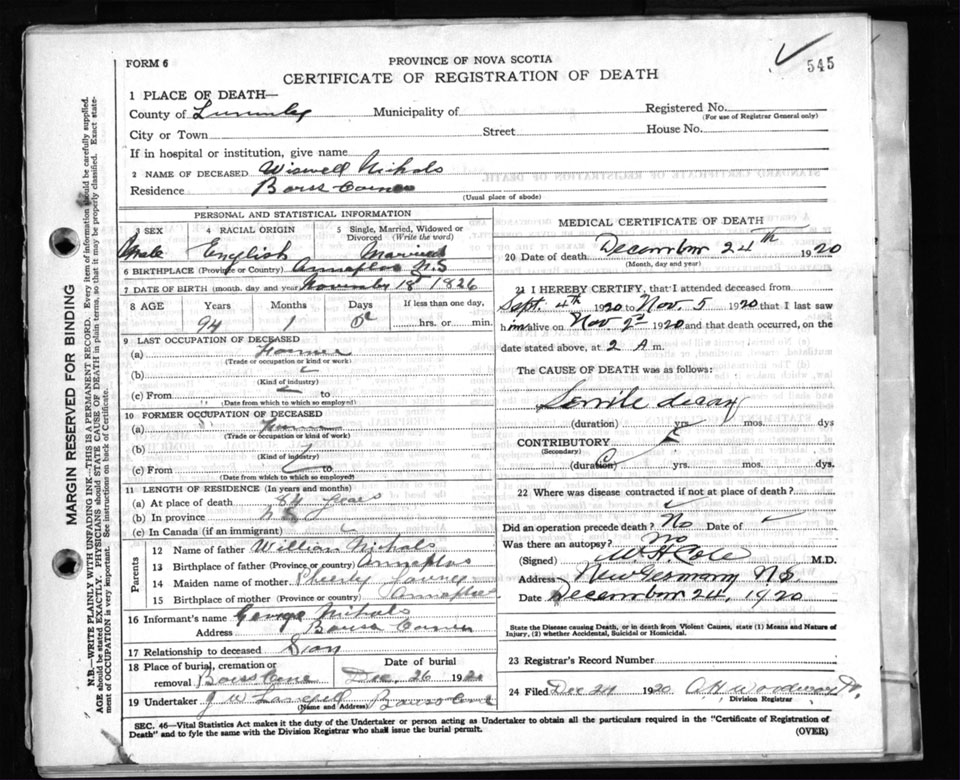 FORM 6
PROVINCE OF NOVA SCOTIA
545
CERTIFICATE OF REGISTRATION OF DEATH
1 PLACE OF DEATH—
County of Municipality of Registered No.
(For use of Registrar General only)
City or Town Street House No.
If in hospital or institution, give name
2 NAME OF DECEASED Wiswell Nichols
Residence
(Usual place of abode)
PERSONAL AND STATISTICAL INFORMATION
3 SEX 4 RACIAL ORIGIN 5 Single, Married, Widowed or Divorced (Write the word)
Male English Married
6 BIRTHPLACE (Province or Country) N.S
7 DATE OF BIRTH (month, day and year) November 18 1826
8 AGE Years Months Days If less than one day,
94 1 hrs. or min.
9 LAST OCCUPATION OF DECEASED
(a) Farmer
(Trade or occupation or kind or work)
(b)
(Kind of industry)
(c) From to
(Date from which to which so employed)
10 FORMER OCCUPATION OF DECEASED
(a)
(Trade or occupation or kind of work)
(b)
(Kind of industry)
(c) From to
(Date from which to which so employed)
11 LENGTH OF RESIDENCE (In years and months)
(a) At place of death years
(b) In province
(c) In Canada (if an immigrant)
Parents
12 Name of father William Nichols
13 Birthplace of father (Province or country)
14 Maiden name of mother
15 Birthplace of mother (Province or country)
16 Informant's name George Nichols
Address
17 Relationship to deceased Son
18 Place of burial, cremation or removal Date of burial
Dec. 26 1920
19 Undertaker J W
(Name and Address)
MEDICAL CERTIFICATE OF DEATH
20 Date of death December 24th 1920
(Month, day and year)
21 I HEREBY CERTIFY, that I attended deceased from
Sept. 4th 1920 to Nov. 5 1920 that I last saw
him alive on Nov 2nd 1920 and that death occurred, on the
date stated above, at 2 A m.
The CAUSE OF DEATH was as follows:
Senile decay
(duration) yrs. mos. dys
CONTRIBUTORY
(Secondary)
(duration) yrs. mos. dys.
22 Where was disease contracted if not at place of death?
Did an operation precede death? No Date of
Was there an autopsy? No
(Signed) W. H. Cole M.D.
Address New Germany N.S.
Date December 24, 1920
State the Disease causing Death, or in death from Violent Causes, state (1) Means and Nature of
Injury, (2) whether Accidental, Suicidal or Homicidal.
23 Registrar's Record Number
24 Filed Dec 24 1920
Division Registrar
SEC. 46—Vital Statistics Act makes it the duty of the Undertaker or person acting as Undertaker to obtain all the particulars required in the "Certificate of Registration of
Death" and to fyle the same with the Division Registrar who shall issue the burial permit. (OVER)
MARGIN RESERVED FOR BINDING
N.B.—WRITE PLAINLY WITH UNFADING INK—THIS IS A PERMANENT RECORD. Every item of information should be carefully supplied.
AGE should be stated EXACTLY. PHYSICIANS should STATE CAUSE OF DEATH in plain terms, so that it may be properly classified. Exact state-
ment of OCCUPATION is very important. See instructions on back of Certificate.